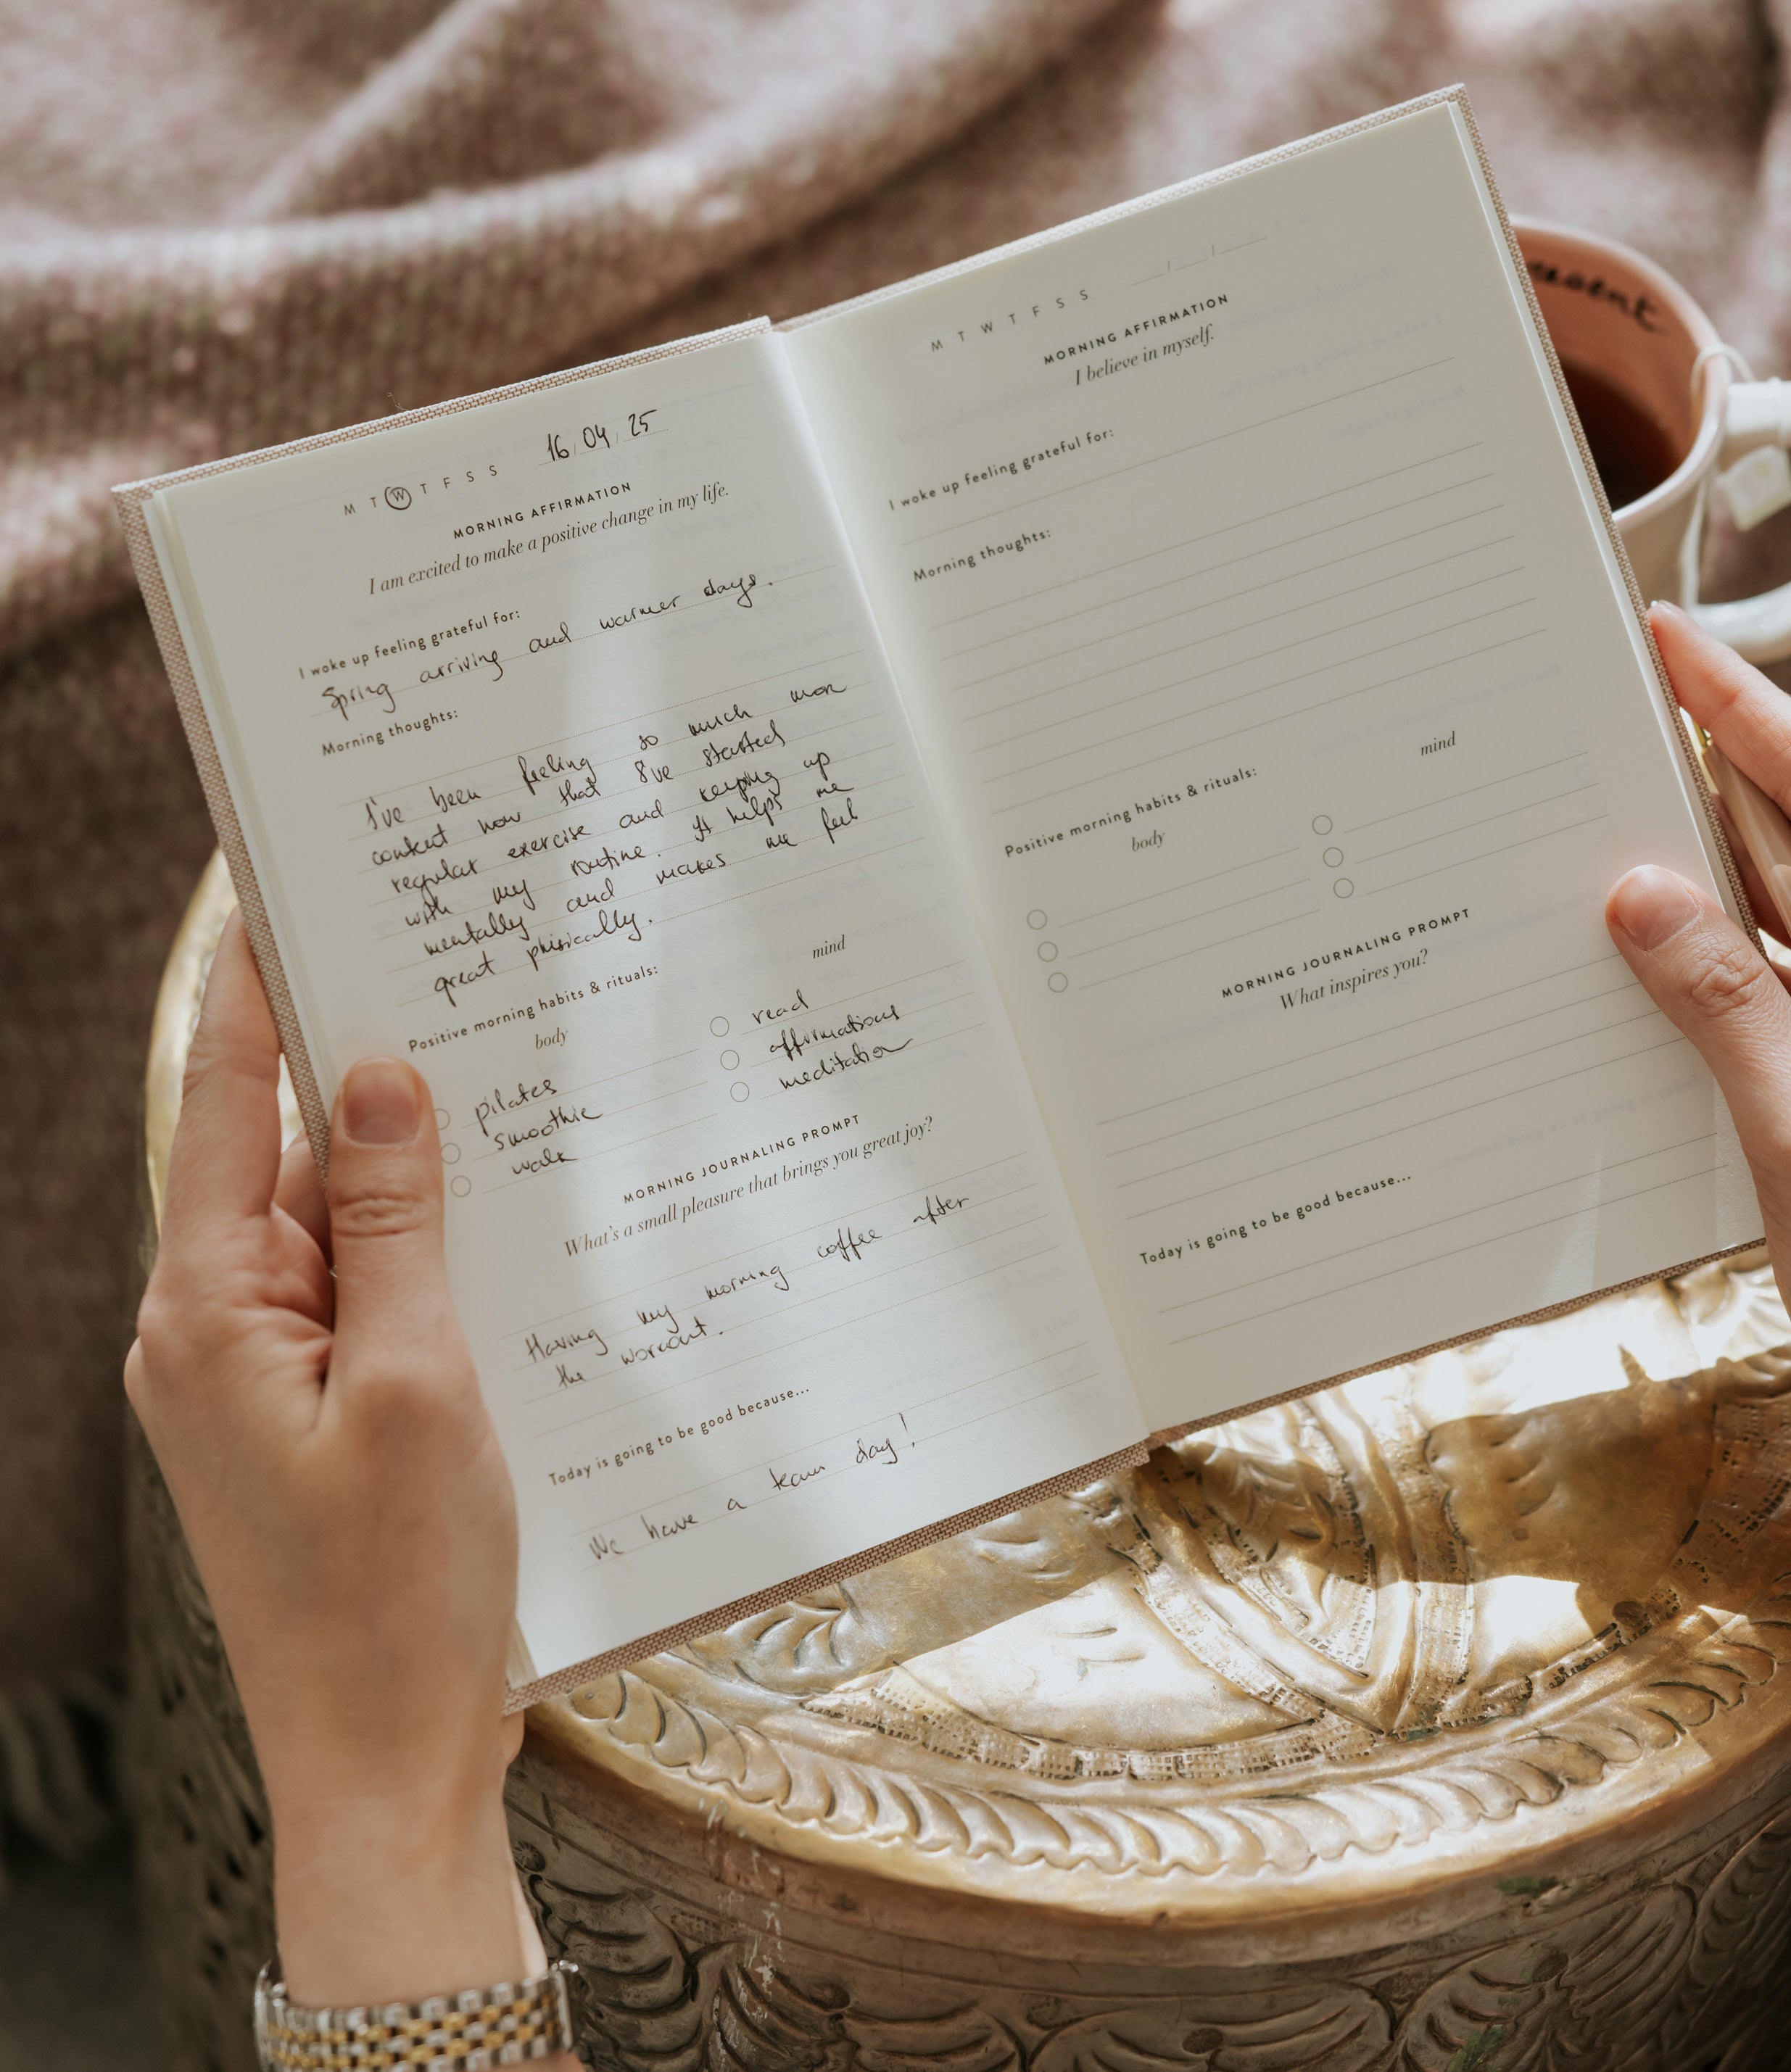 M T W T F S S 16/04/25
MORNING AFFIRMATION
I am excited to make a positive change in my life.
I woke up feeling grateful for:
Spring arriving and warmer days.
Morning thoughts:
I've been feeling so much more
content now that I've started
regular exercise and keeping up
with my routine. It helps me
mentally and makes me feel
great phisically.
Positive morning habits & rituals:
body
mind
pilates
smoothie
walk
read
affirmations
meditation
MORNING JOURNALING PROMPT
What's a small pleasure that brings you great joy?
Having my morning coffee after
the workout.
Today is going to be good because...
We have a team day!
M T W T F S S
MORNING AFFIRMATION
I believe in myself.
I woke up feeling grateful for:
Morning thoughts:
Positive morning habits & rituals:
body
mind
MORNING JOURNALING PROMPT
What inspires you?
Today is going to be good because...